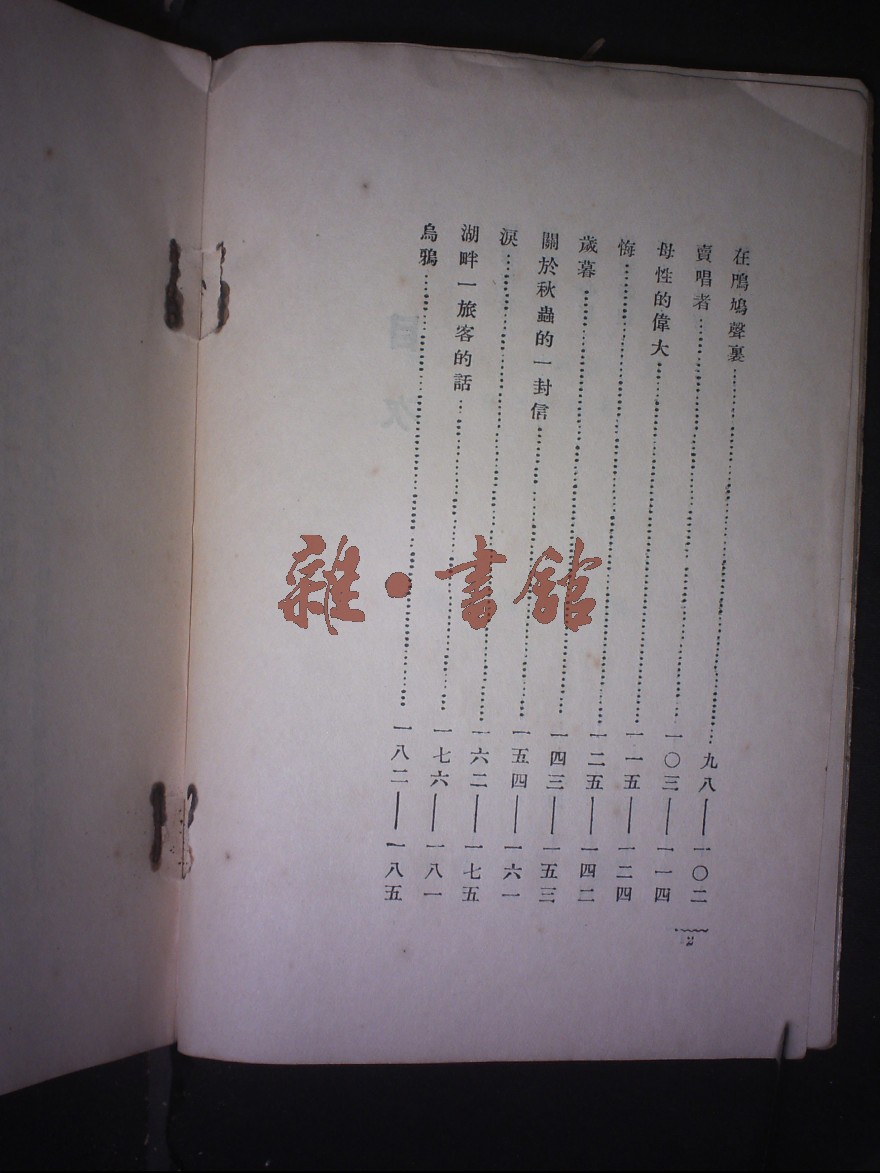 在鳲鳩聲裏……九八——一〇二
賣唱者……一〇三——一一四
母性的偉大……一一五——一二四
悔……一二五——一四二
歲暮……一四三——一五三
關於秋蟲的一封信……一五四——一六一
淚……一六二——一七五
湖畔一旅客的話……一七六——一八一
烏鴉……一八二——一八五
2
雜·書館
目次